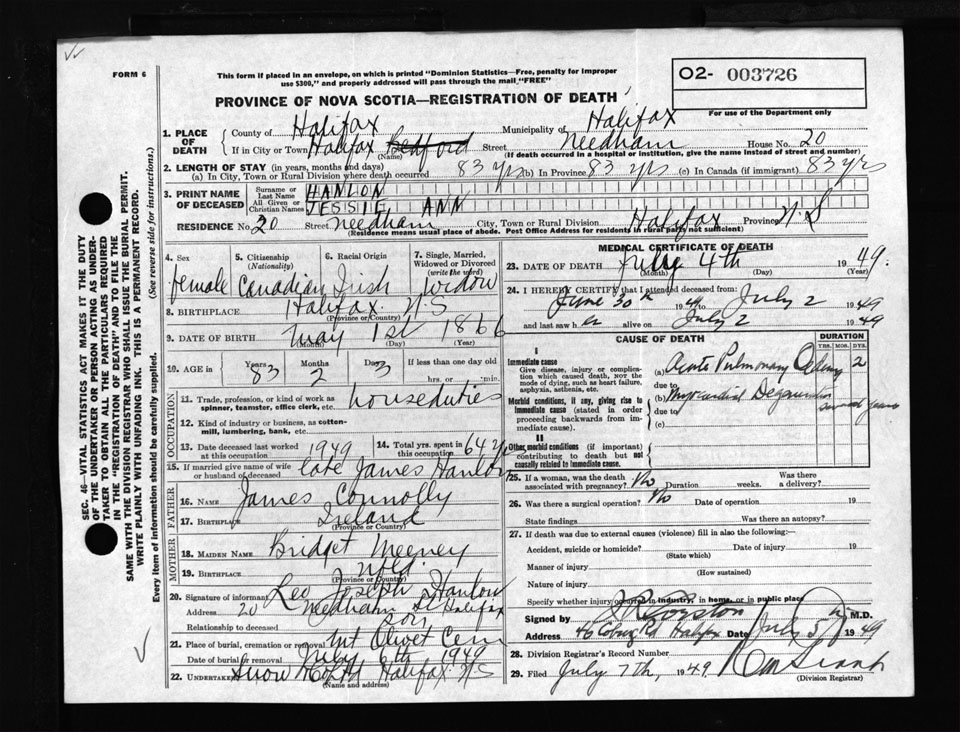 FORM 6
This form if placed in an envelope, on which is printed "Dominion Statistics—Free, penalty for improper
use $300," and properly addressed will pass through the mail "FREE"
O2- 003726
PROVINCE OF NOVA SCOTIA—REGISTRATION OF DEATH
For use of the Department only
1. PLACE OF DEATH County of Halifax Municipality of Halifax
If in City or Town Halifax Bedford (Name) Street Needham House No. 20
(If death occurred in a hospital or institution, give the name instead of street and number)
2. LENGTH OF STAY (in years, months and days)
(a) In City, Town or Rural Division where death occurred 83 yrs (b) In Province 83 yrs (c) In Canada (if immigrant) 83 yrs
3. PRINT NAME OF DECEASED Surname or Last Name HANLON
All Given or Christian Names JESSIE ANN
RESIDENCE No. 20 Street Needham City, Town or Rural Division Halifax Province N.S
(Residence means usual place of abode. Post Office Address for residents in rural parts not sufficient)
4. Sex female
5. Citizenship (Nationality) Canadian
6. Racial Origin Irish
7. Single, Married, Widowed or Divorced (write the word) Widow
8. BIRTHPLACE Halifax N.S
(Province or Country)
9. DATE OF BIRTH May 1st 1866
(Month) (Day) (Year)
10. AGE in Years 83 Months 2 Days 3 If less than one day old
hrs. or min.
OCCUPATION
11. Trade, profession, or kind of work as spinner, teamster, office clerk, etc. houseduties
12. Kind of industry or business, as cotton-mill, lumbering, bank, etc.
13. Date deceased last worked at this occupation 1949
14. Total yrs. spent in this occupation 64 y
15. If married give name of wife or husband of deceased late James Hanlon
FATHER
16. NAME James Connolly
17. BIRTHPLACE Ireland
(Province or Country)
MOTHER
18. MAIDEN NAME Bridget Meeney
19. BIRTHPLACE Nfld.
(Province or Country)
20. Signature of informant Leo Joseph Hanlon
Address 20 Needham St Halifax
Relationship to deceased son
21. Place of burial, cremation or removal Mt Olivet Cem
Date of burial or removal July 6th 1949
22. UNDERTAKER Snow Halifax N.S
(Name and address)
MEDICAL CERTIFICATE OF DEATH
23. DATE OF DEATH July 4th 1949.
(Month) (Day) (Year)
24. I HEREBY CERTIFY that I attended deceased from:
June 30th 1949 to July 2 1949
and last saw her alive on July 2 1949
CAUSE OF DEATH
DURATION
YRS. MOS. DYS.
I
Immediate cause
Give disease, injury or complication which caused death, not the mode of dying, such as heart failure, asphyxia, asthenia, etc.
(a) Acute Pulmonary Edema 2
due to
Morbid conditions, if any, giving rise to immediate cause (stated in order proceeding backwards from immediate cause).
(b) Myocardial Degeneration
due to several years
(c)
II
Other morbid conditions (if important) contributing to death but not causally related to immediate cause.
25. If a woman, was the death associated with pregnancy? No Duration weeks. Was there a delivery?
26. Was there a surgical operation? No Date of operation 19
State findings Was there an autopsy?
27. If death was due to external causes (violence) fill in also the following:—
Accident, suicide or homicide? Date of injury 19
(State which)
Manner of injury
(How sustained)
Nature of injury
Specify whether injury occurred in industry, in home, or in public place
Signed by M.D.
Address 46 Coburg Rd Halifax Date July 5 1949
28. Division Registrar's Record Number
29. Filed July 7th, 1949
(Division Registrar)
SEC. 46 VITAL STATISTICS ACT MAKES IT THE DUTY
OF THE UNDERTAKER OR PERSON ACTING AS UNDER-
TAKER TO OBTAIN ALL THE PARTICULARS REQUIRED
IN THE "REGISTRATION OF DEATH" AND TO FILE THE
SAME WITH THE DIVISION REGISTRAR WHO SHALL ISSUE THE BURIAL PERMIT.
WRITE PLAINLY WITH UNFADING INK. THIS IS A PERMANENT RECORD.
Every item of information should be carefully supplied. (See reverse side for instructions.)